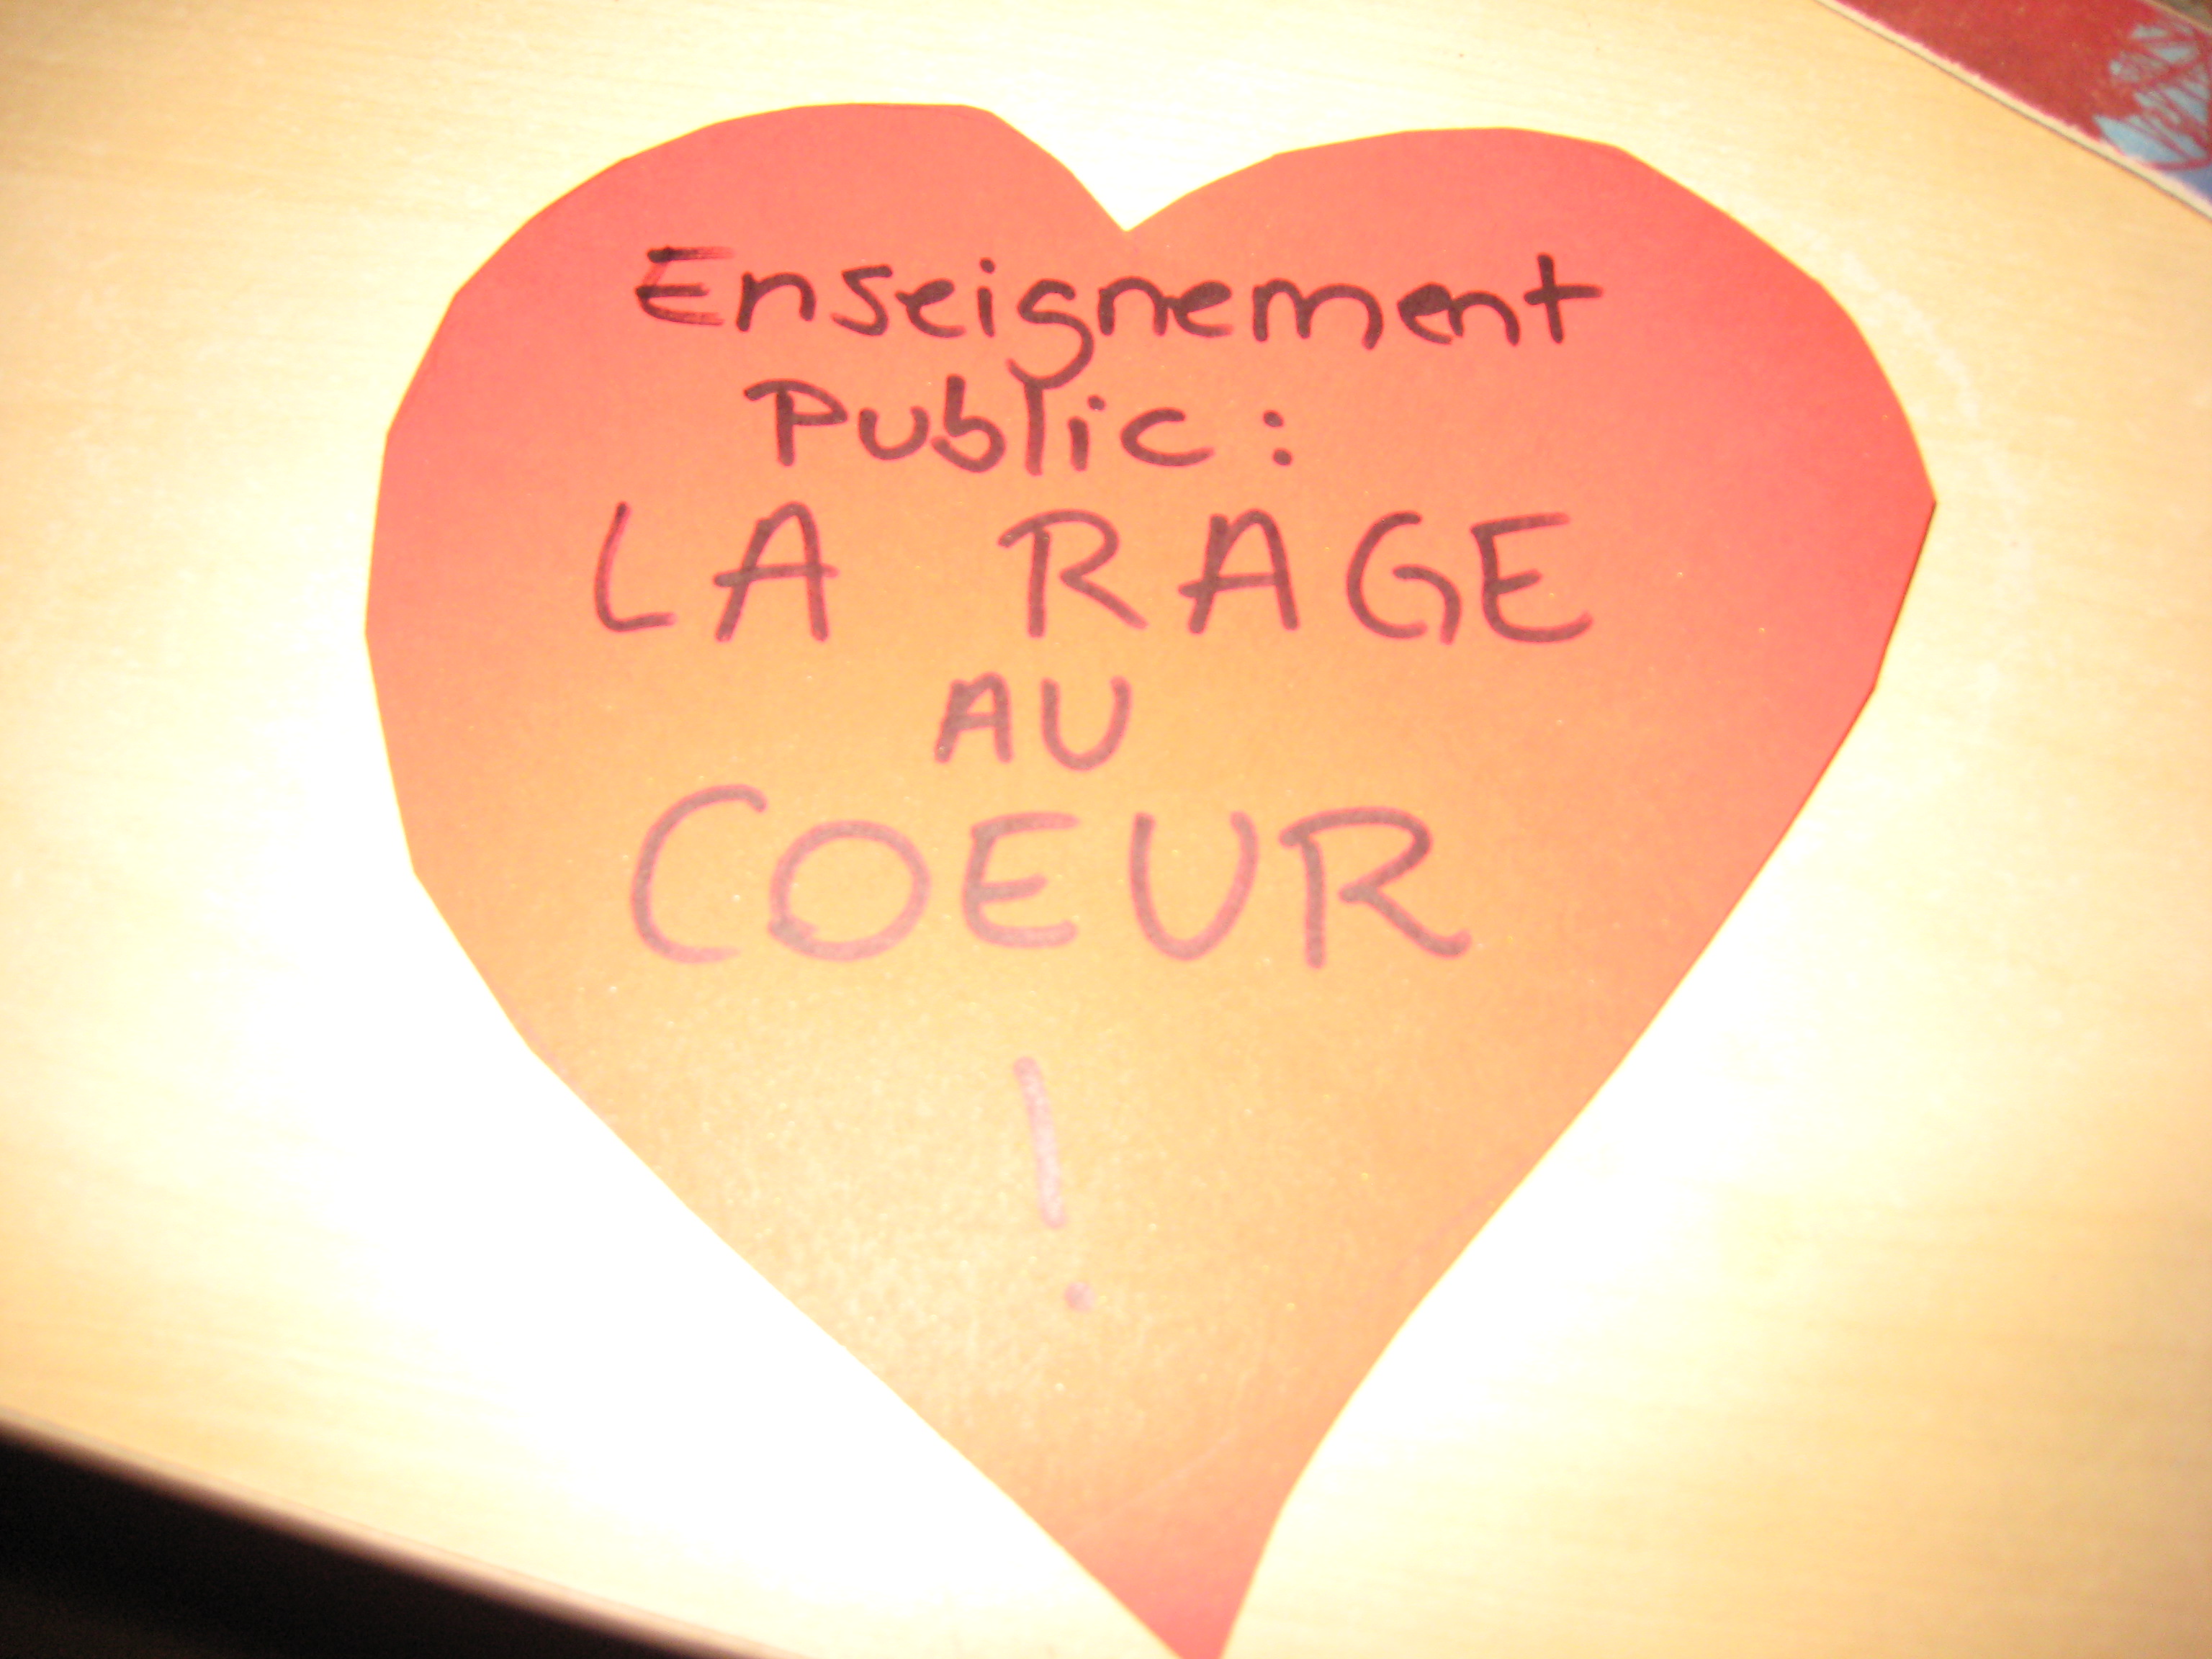 Enseignement
Public :
LA RAGE
AU
COEUR
!